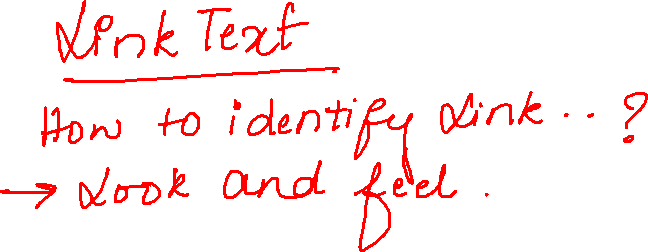 Link Text
How to identify Link.. ?
→ Look and feel.